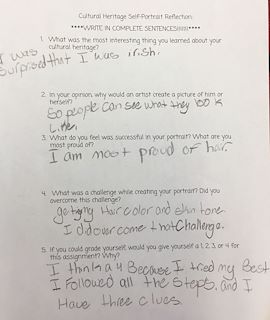 Cultural Heritage Self-Portrait Reflection:
****WRITE IN COMPLETE SENTENCES!!!!!****
1. What was the most interesting thing you learned about your
cultural heritage?
I was
surprised that I was irish.
2. In your opinion, why would an artist create a picture of him or
herself?
So people can see what they look
Like.
3. What do you feel was successful in your portrait? What are you
most proud of?
I am most proud of hair.
4. What was a challenge while creating your portrait? Did you
overcome this challenge?
getting Hair color and skin tone.
I did over come that Challenge.
5. If you could grade yourself, would you give yourself a 1, 2, 3, or 4 for
this assignment? Why?
I think a 4 Because I tried my Best
I Followed all the steps, and I
Have three clues.